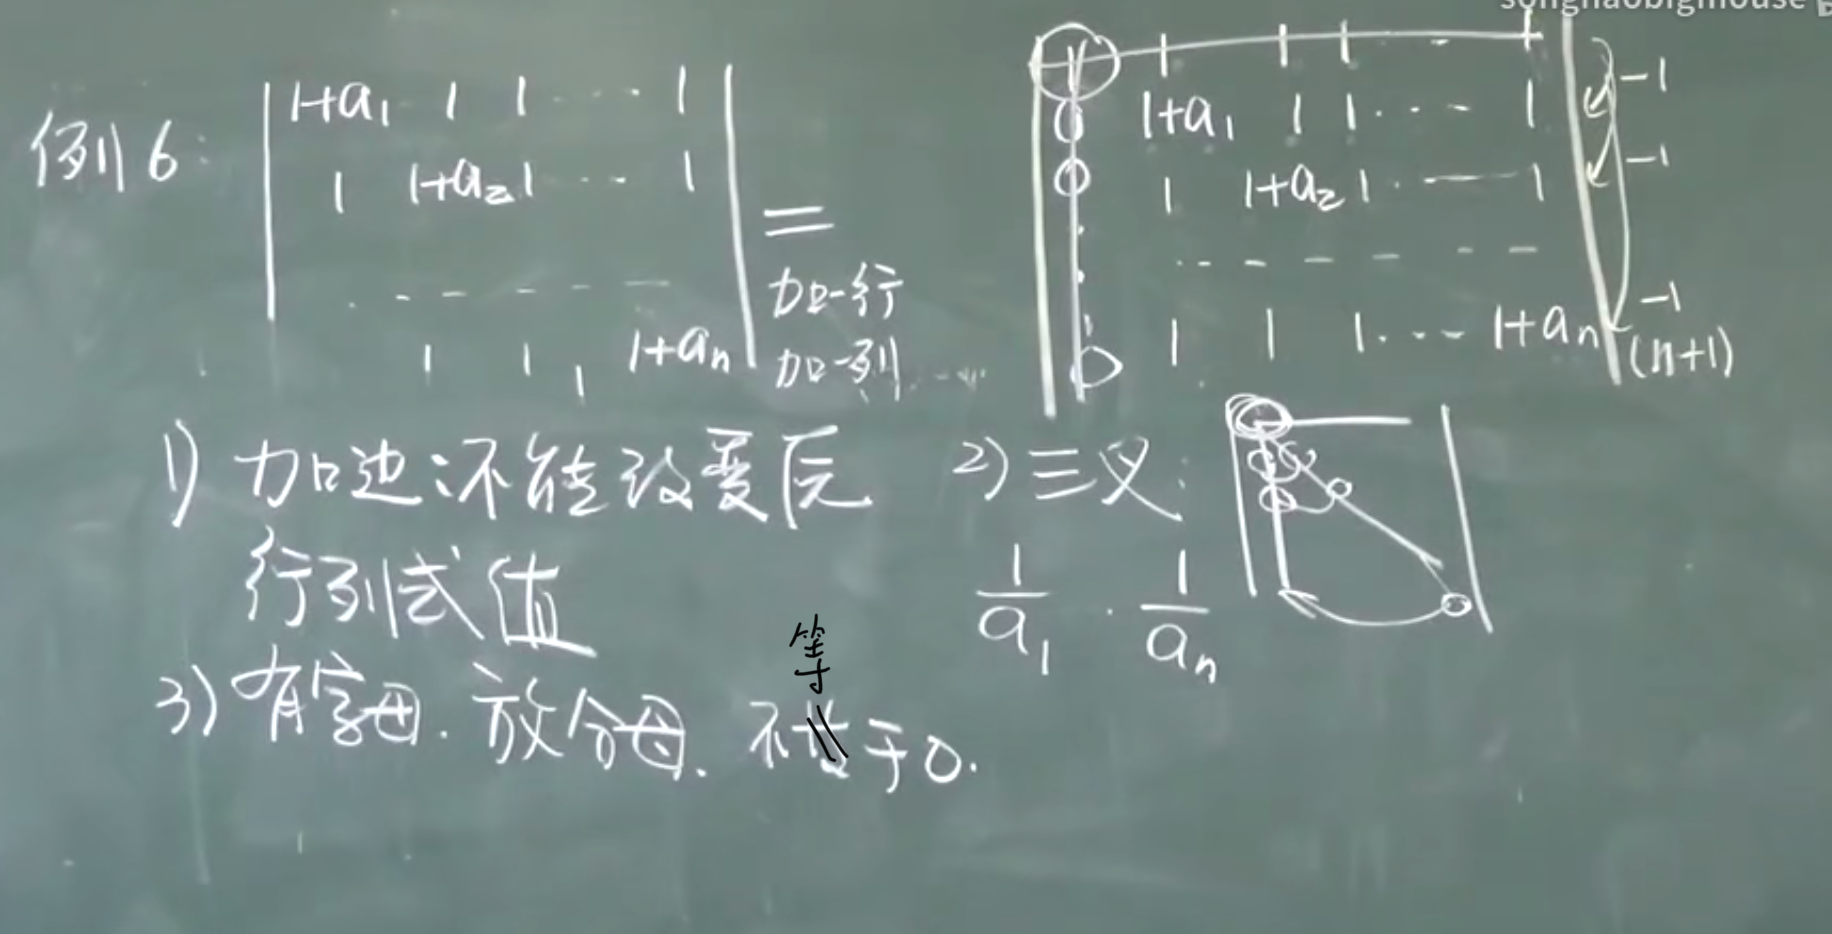 songhaobigmouse
例6:
1+a₁ 1 1 ... 1
1 1+a₂ 1 ... 1
. - - - - -
1 1 1 1+aₙ
=
加一行
加一列
1 1 1 1 - 1
0 1+a₁ 1 1 ... 1
0 1 1+a₂ 1 ... 1
. . - - - - -
0 1 1 1 ... 1+aₙ
-1
-1
-1
(n+1)
1) 加边:不能改变原
行列式值
2) 三叉:
1/a₁ · 1/aₙ
等
3) 有字母. 放分母. 不 于0.